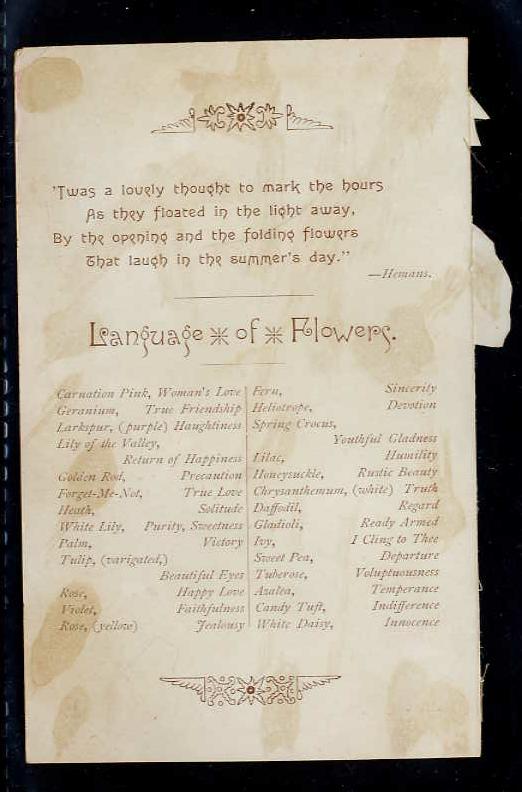 'Twas a lovely thought to mark the hours
As they floated in the light away,
By the opening and the folding flowers
That laugh in the summer's day."
—Hemans.
Language of Flowers.
Carnation Pink, Woman's Love
Geranium, True Friendship
Larkspur, (purple) Haughtiness
Lily of the Valley,
Return of Happiness
Golden Rod, Precaution
Forget-Me-Not, True Love
Heath, Solitude
White Lily, Purity, Sweetness
Palm, Victory
Tulip, (varigated,)
Beautiful Eyes
Rose, Happy Love
Violet, Faithfulness
Rose, (yellow) Jealousy
Fern, Sincerity
Heliotrope, Devotion
Spring Crocus,
Youthful Gladness
Lilac, Humility
Honeysuckle, Rustic Beauty
Chrysanthemum, (white) Truth
Daffodil, Regard
Gladioli, Ready Armed
Ivy, I Cling to Thee
Sweet Pea, Departure
Tuberose, Voluptuousness
Azalea, Temperance
Candy Tuft, Indifference
White Daisy, Innocence